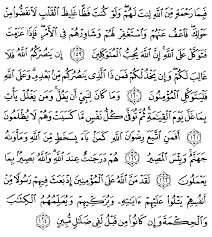 فَبِمَا رَحْمَةٍ مِّنَ ٱللَّهِ لِنتَ لَهُمْ وَلَوْ كُنتَ فَظًّا غَلِيظَ ٱلْقَلْبِ لَٱنفَضُّوا۟ مِنْ
حَوْلِكَ فَٱعْفُ عَنْهُمْ وَٱسْتَغْفِرْ لَهُمْ وَشَاوِرْهُمْ فِى ٱلْأَمْرِ فَإِذَا عَزَمْتَ
فَتَوَكَّلْ عَلَى ٱللَّهِ إِنَّ ٱللَّهَ يُحِبُّ ٱلْمُتَوَكِّلِينَ ١٥٩ إِن يَنصُرْكُمُ ٱللَّهُ فَلَا
غَالِبَ لَكُمْ وَإِن يَخْذُلْكُمْ فَمَن ذَا ٱلَّذِى يَنصُرُكُم مِّنۢ بَعْدِهِۦ وَعَلَى ٱللَّهِ
فَلْيَتَوَكَّلِ ٱلْمُؤْمِنُونَ ١٦٠ وَمَا كَانَ لِنَبِىٍّ أَن يَغُلَّ وَمَن يَغْلُلْ يَأْتِ
بِمَا غَلَّ يَوْمَ ٱلْقِيَٰمَةِ ثُمَّ تُوَفَّىٰ كُلُّ نَفْسٍ مَّا كَسَبَتْ وَهُمْ لَا يُظْلَمُونَ
١٦١ أَفَمَنِ ٱتَّبَعَ رِضْوَٰنَ ٱللَّهِ كَمَنۢ بَآءَ بِسَخَطٍ مِّنَ ٱللَّهِ وَمَأْوَىٰهُ
جَهَنَّمُ وَبِئْسَ ٱلْمَصِيرُ ١٦٢ هُمْ دَرَجَٰتٌ عِندَ ٱللَّهِ وَٱللَّهُ بَصِيرٌۢ بِمَا
يَعْمَلُونَ ١٦٣ لَقَدْ مَنَّ ٱللَّهُ عَلَى ٱلْمُؤْمِنِينَ إِذْ بَعَثَ فِيهِمْ رَسُولًا مِّنْ
أَنفُسِهِمْ يَتْلُوا۟ عَلَيْهِمْ ءَايَٰتِهِۦ وَيُزَكِّيهِمْ وَيُعَلِّمُهُمُ ٱلْكِتَٰبَ
وَٱلْحِكْمَةَ وَإِن كَانُوا۟ مِن قَبْلُ لَفِى ضَلَٰلٍ مُّبِينٍ ١٦٤